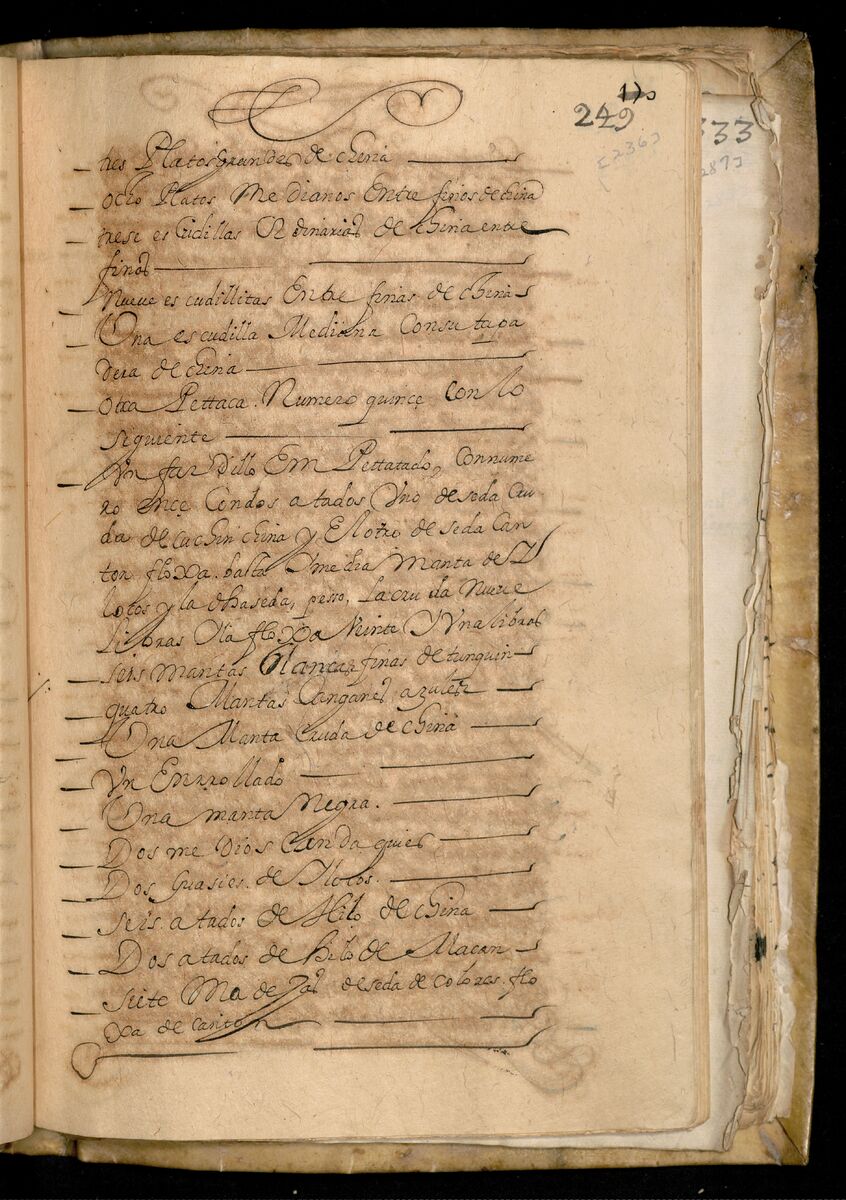 249
[236]
333
287]
tres Platos grandes de china
ocho Platos Medianos Entre finos de china
trese escudillas Ordinarias de china entre
finas
Nueve escudillitas Entre finas de china
Una escudilla Mediana Con su tapa
dera de china
Otra Pettaca. Numero quince con lo
siguiente
Un fardillo Em Pettatado, con nume
ro once Con dos atados Uno de seda Cru
da de cuchinchina y El otro de seda Can
ton floxa. basta
lotos y la dha seda, pesso, La cruda Nueve
Libras Y la floxa Veinte Y Una libras
seis mantas blancas finas de tunquin
quatro Mantas Canganes azules
Una Manta Cruda de china
Un Enrrollado
Una manta Negra.
Dos medios Candaquies
Dos Guasies. de Ylotos.
seis. atados de Hilo de china
Dos atados de hilo de Macan
siete Madejas de seda de colores. flo
xa de canton